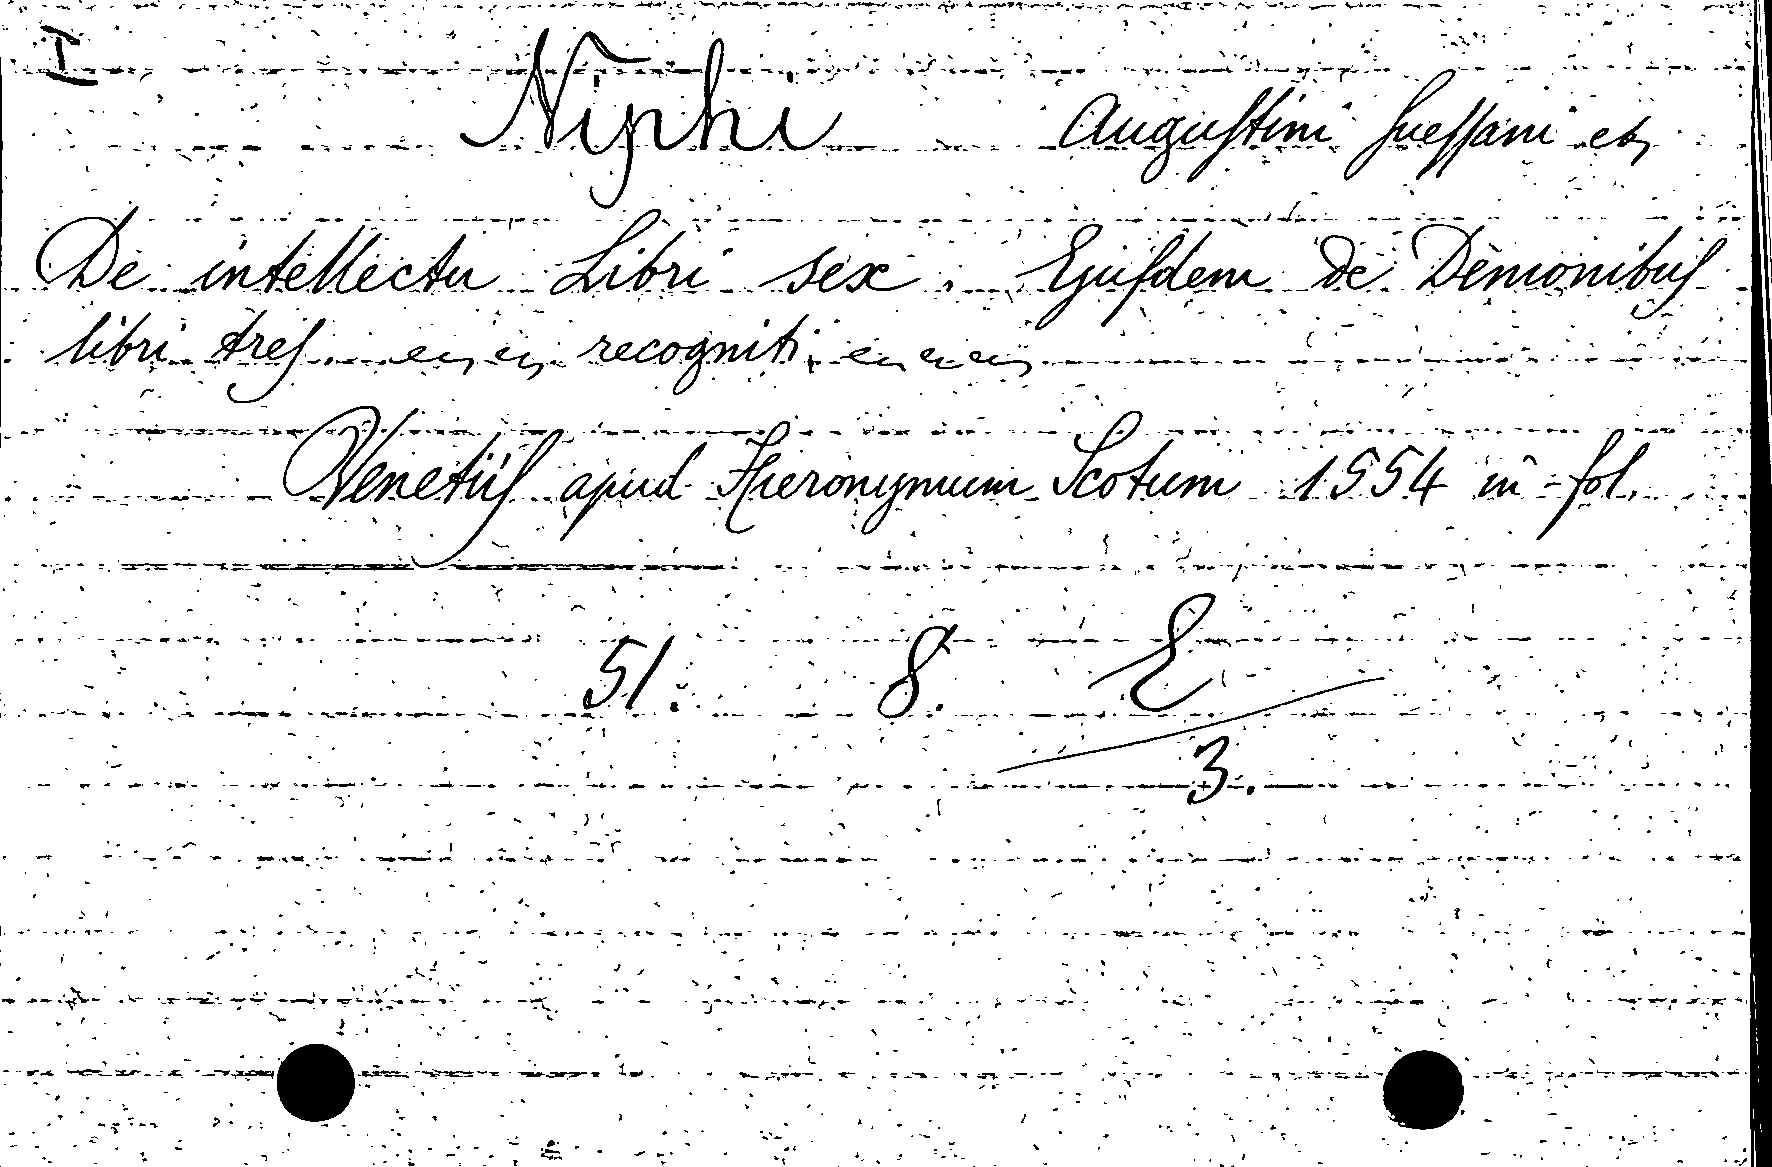 I
Niphi Augustini Suessani et
De intellectu Libri sex. Ejusdem de Demonibus
libri tres. recogniti
Venetiis apud Hieronymum Scotum 1554 in-fol.
51. 8. E
3.